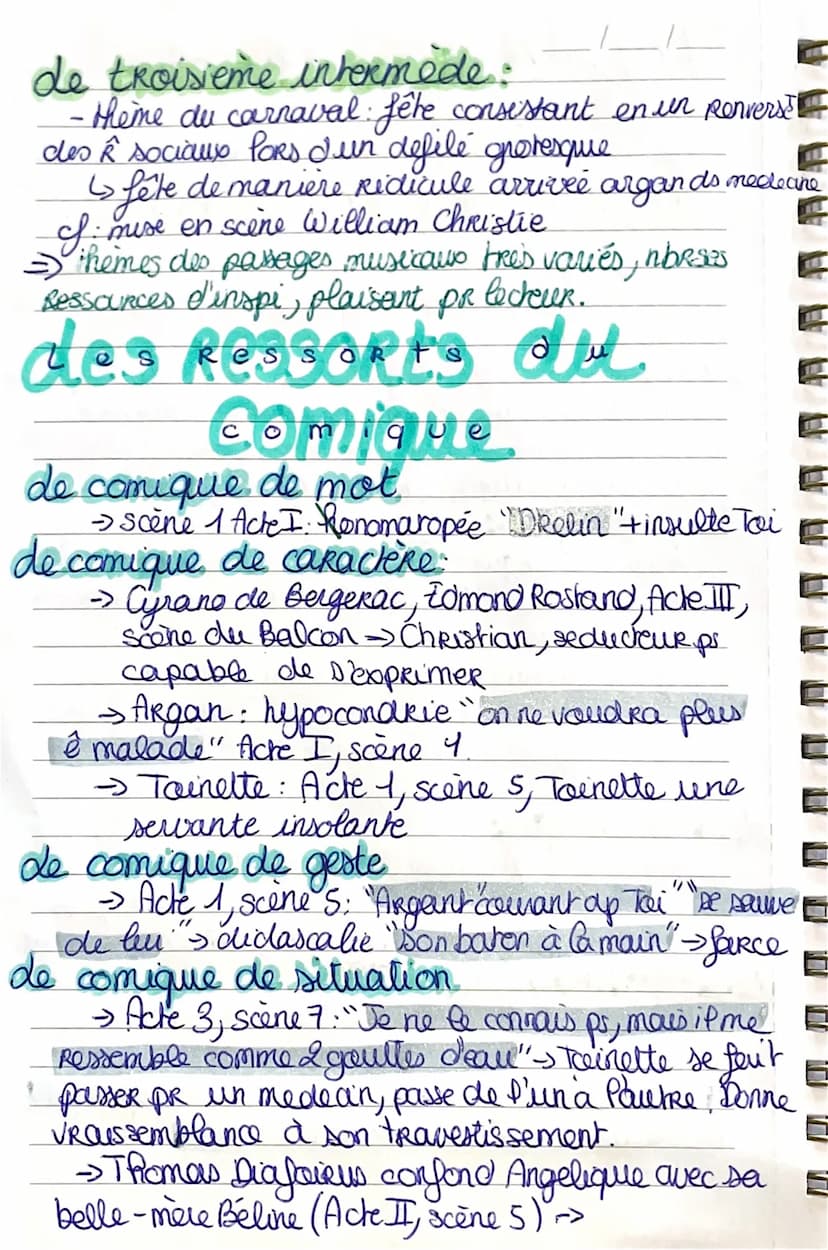 Le troisième intermède :
- thème du carnaval : fête consistant en un renversᵗ
des R̂ sociaux lors d'un defilé grotesque
↳ fête de manière ridicule arrivée argan ds medecine
cf : mise en scène William Christie
=> thèmes des passages musicaux très variés, nbrses
ressources d'inspi, plaisant pr lecteur.
Les Ressorts du
comique
Le comique de mot
-> scène 1 Acte I : Honomaropée "Drelin" + insulte Toi
Le comique de caractère :
-> Cyrano de Bergerac, Edmond Rostand, Acte III,
scène du Balcon -> Christian, seducteur ps
capable de s'exprimer
-> Argan : hypocondrie "on ne voudra plus
ê malade" Acte I, scène 4.
-> Toinette : Acte 1, scène 5, Toinette une
servante insolante
Le comique de geste
-> Acte 1, scène 5 : "Argant" courant ap Toi" "se sauve
de lui" -> didascalie "son baton à la main" -> farce
Le comique de situation
-> Acte 3, scène 7 : "Je ne le connais ps, mais il me
ressemble comme 2 gouttes d'eau" -> Toinette se fait
passer pr un medecin, passe de l'un à l'autre. Donne
vraissemblance à son travestissement.
-> Thomas Diafoirus confond Angelique avec sa
belle-mère Béline (Acte II, scène 5) ->